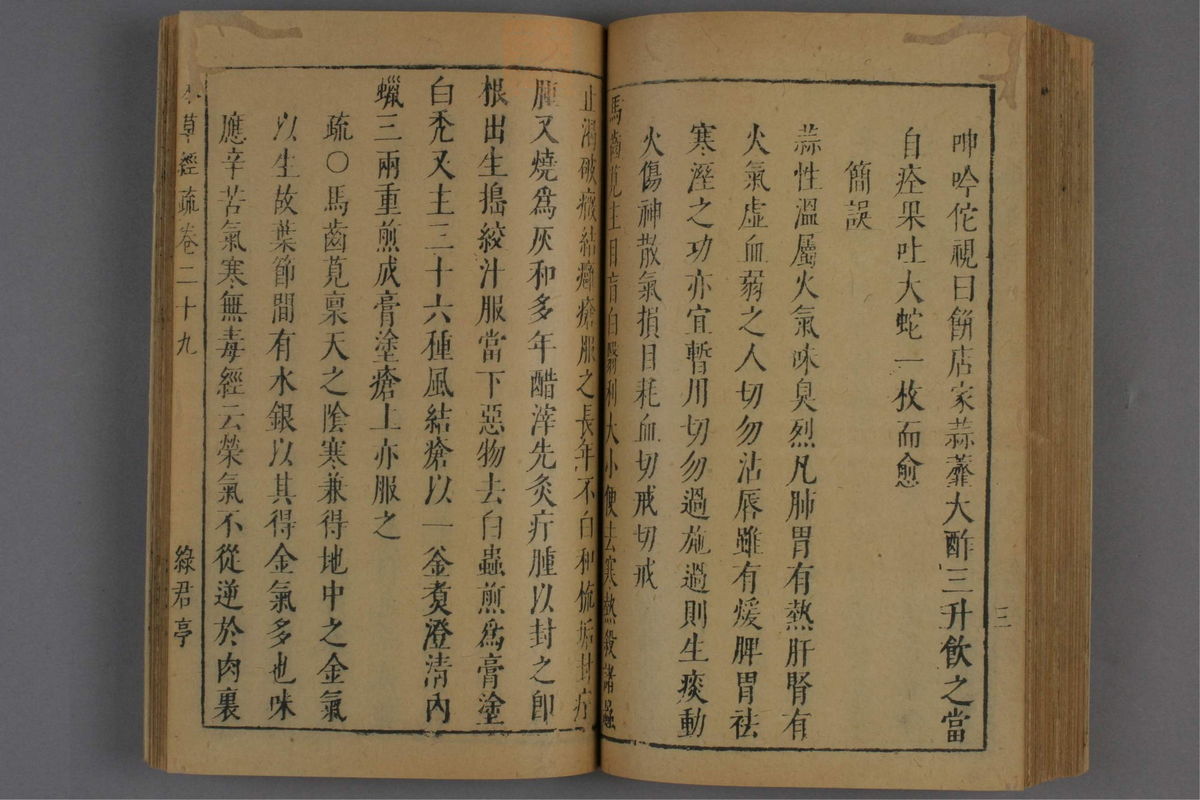 呻吟佗視曰餅店家蒜虀大酢三升飲之當
自痊果吐大蛇一枚而愈
簡誤
蒜性溫屬火氣味臭烈凡肺胃有熱肝腎有
火氣虛血弱之人切勿沾唇雖有煖脾胃祛
寒溼之功亦宜暫用切勿過施過則生痰動
火傷神散氣損目耗血切戒切戒
馬齒莧主目盲白瞖利大小便去寒熱殺諸蟲
止渴破癥結癰瘡服之長年不白和梳垢封疔
腫又燒爲灰和多年醋滓先灸疔腫以封之卽
根出生搗絞汁服當下惡物去白蟲煎爲膏塗
白禿又主三十六種風結瘡以一釜煑澄清內
蠟三兩重煎成膏塗瘡上亦服之
疏○馬齒莧稟天之陰寒兼得地中之金氣
以生故葉節間有水銀以其得金氣多也味
應辛苦氣寒無毒經云榮氣不從逆於肉裏
本草經疏卷二十九
綠君亭
三